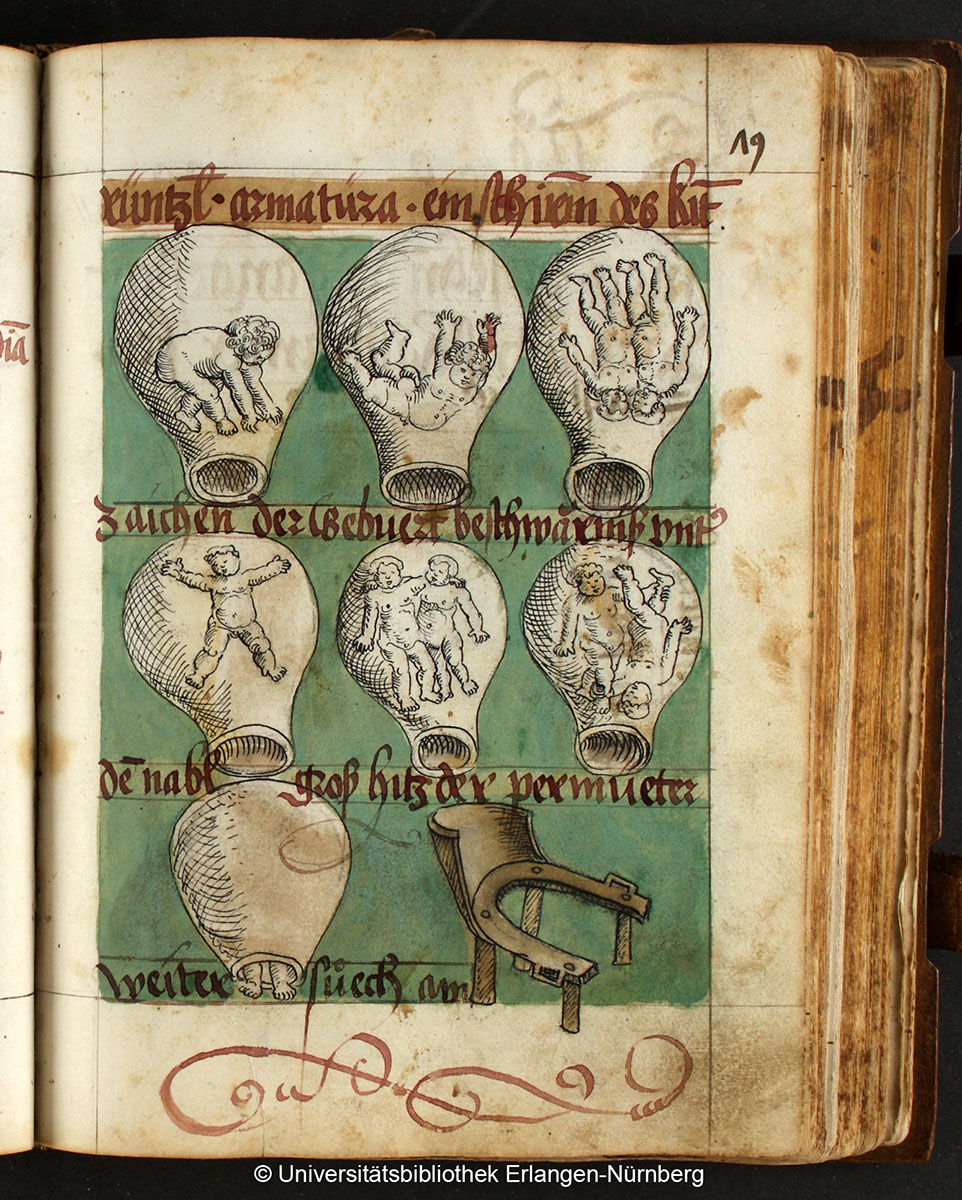 19
armatura · ein schirm des kin̄t
zaichen der Gebuert beschwärniß vnt
de᷑ nabl groß hitz der permueter
weiter suech am
dia
© Universitätsbibliothek Erlangen-Nürnberg